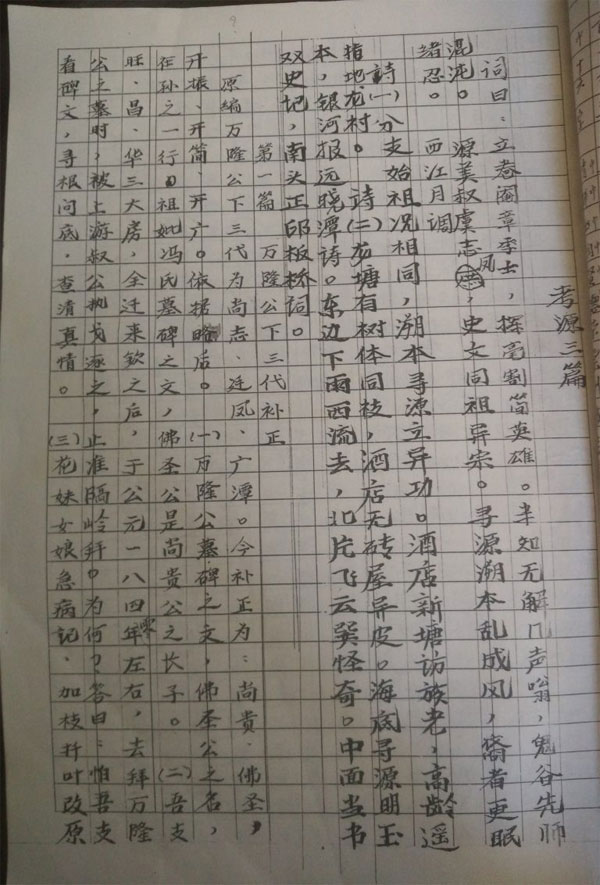 9
考源三篇
词曰：立卷阁章李士，挥毫割笛英雄。半知无解几声嗡，鬼谷先师
混沌。源美叔虞志凤，史文同祖异宗。寻源溯本乱成风，裔者更眠
绪忍。 西江月调
詩(一)分支始祖况相同，溯本寻源立异功。酒店新塘访族老，高龄遥
指地龙村。詩(二)龙塘有树体同枝，酒店无砖屋异皮。海底寻源明玉
本，银河报远晓潭诗。东边下雨西流去，北片飞云巽怪奇。中面当书
双史记，南头正邱板桥词。
第一篇 万隆公下三代补正
原编万隆公下三代为尚志、廷凤、广潭。今补正为：尚贵、佛圣，
开振、开简、开广。依据略后。(一)万隆公墓碑之文，佛圣公之名，
在孙之一行。祖妣冯氏墓碑之文，佛圣公是尚贵公之长子。(二)吾支
旺、昌、华三大房，全迁来钦之后，于公元一八四零年左右，去拜万隆
公之墓时，被上游叔公执戈逐之，止准隔岭拜。为何？答曰：怕吾支
看碑文，寻根问底，查清真情。(三)花妹女娘急病记、加枝折叶改原